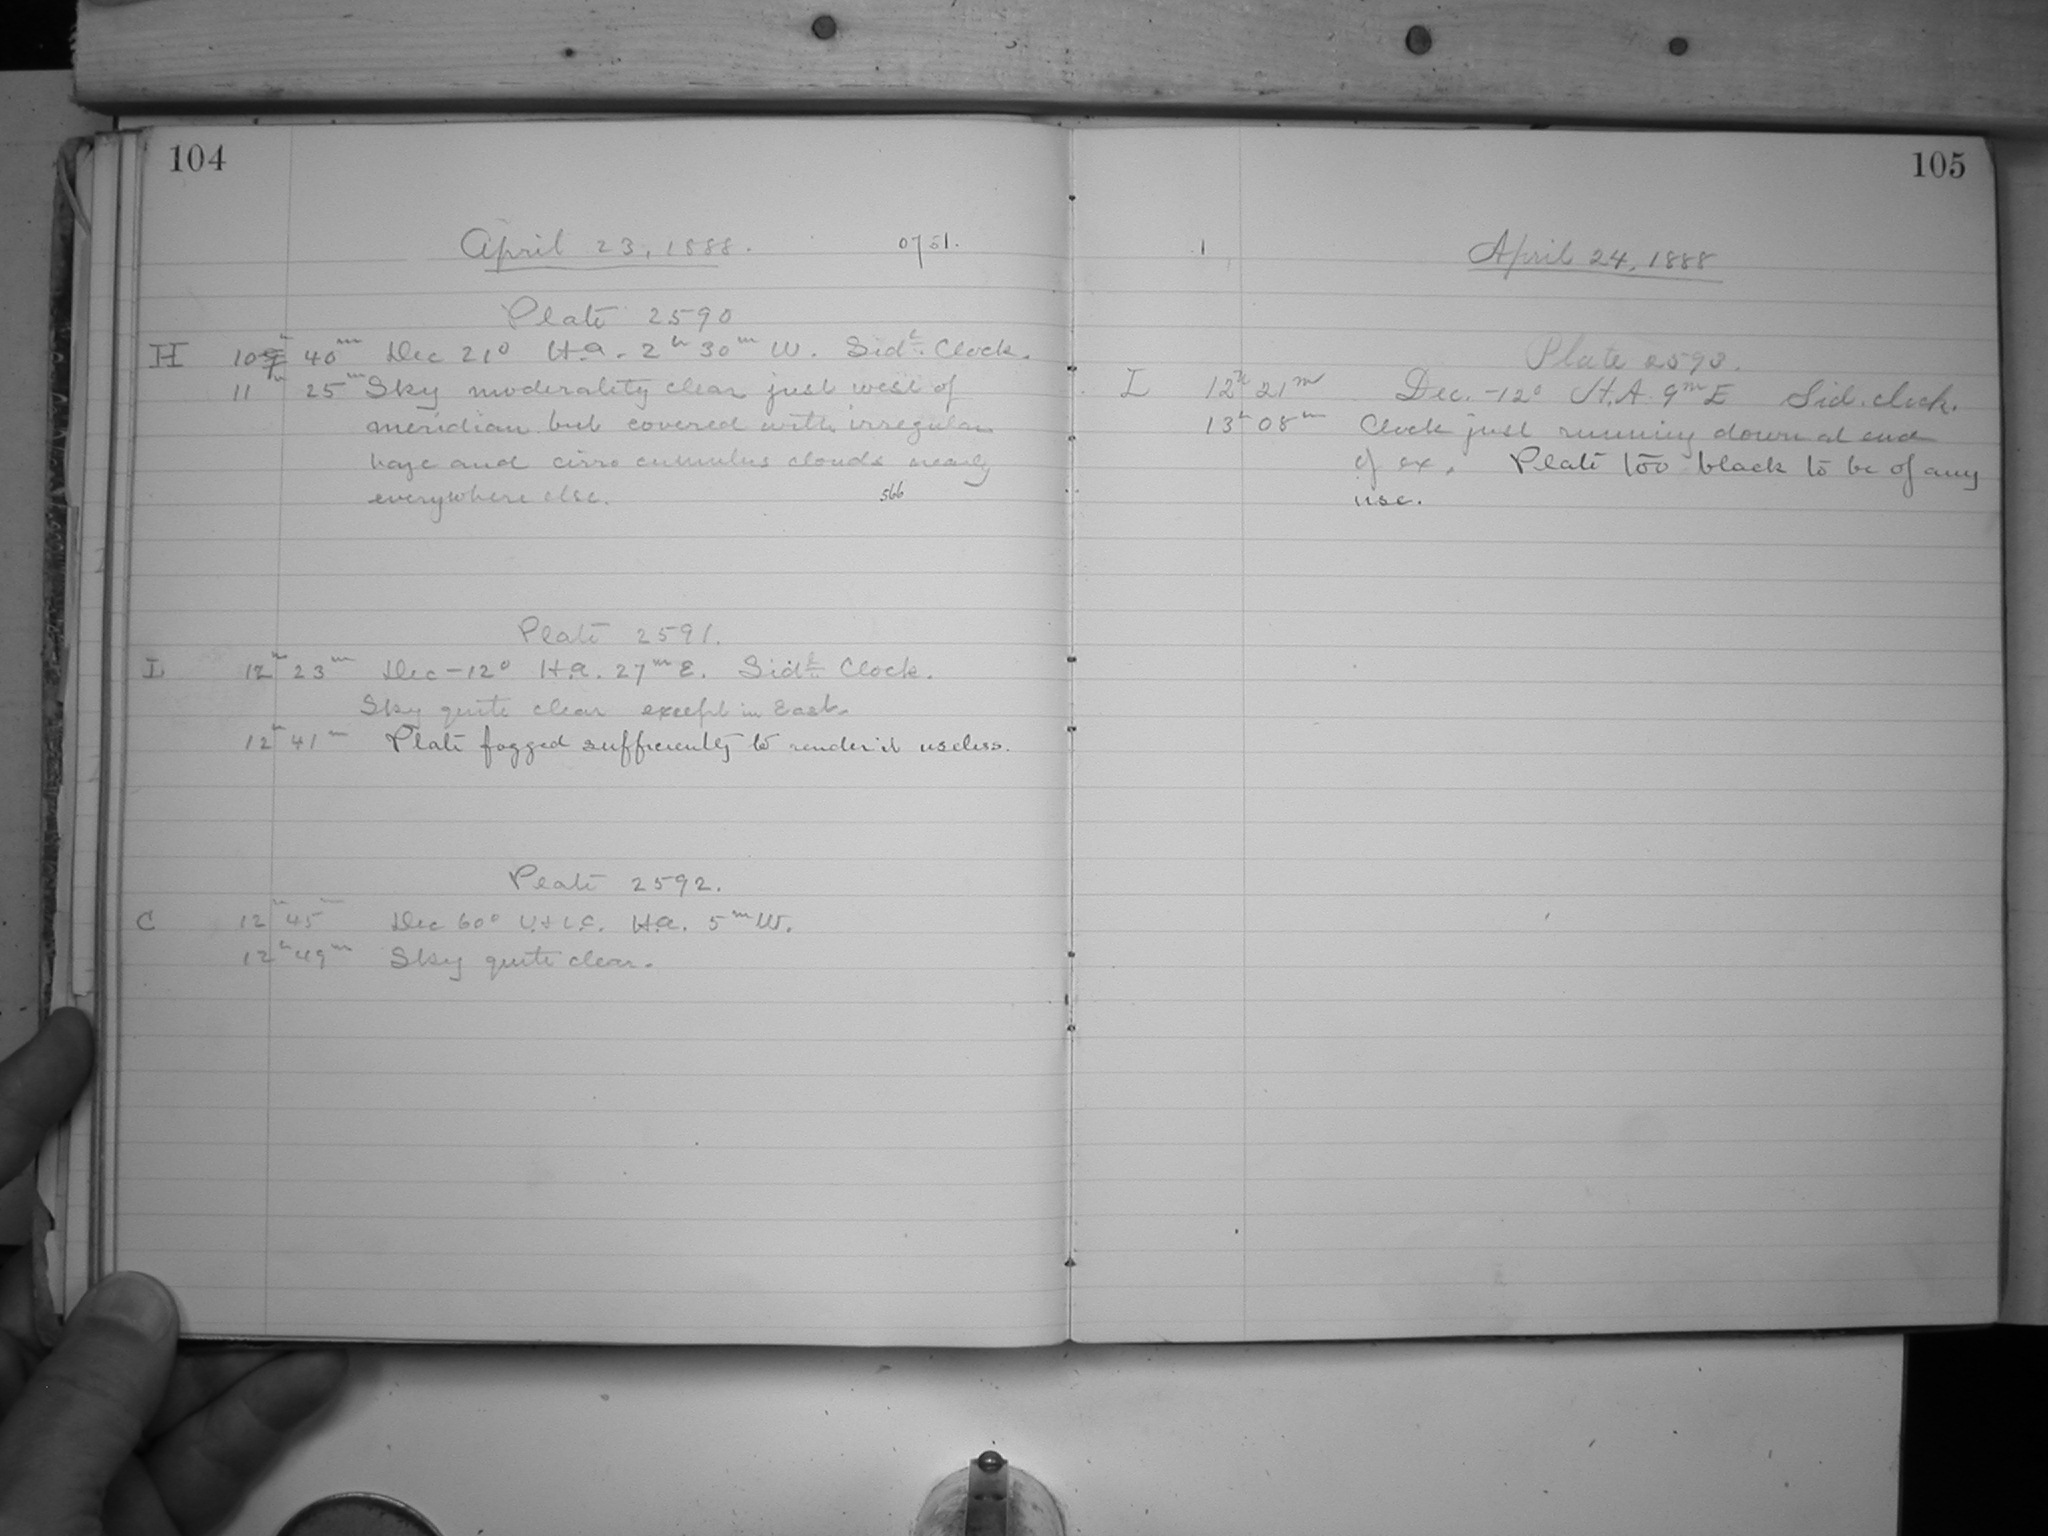 104
April 23, 1888. 0751.
Plate 2590
H 10 40m Dec 21° H.a. 2h 30m W. Sidl. Clock.
11h 25m Sky moderately clear just west of
meridian but covered with irregular
haze and cirro cumulus clouds nearly
everywhere else. 566
Plate 2591.
I 12h 23m Dec -12° H.a. 27m E. Sidl. Clock.
Sky quite clear except in East.
12h 41m Plate fogged sufficiently to render it useless.
Plate 2592.
C 12h 45m Dec 60° U.+L.C. H.a. 5m W.
12h 49m Sky quite clear.
105
1 April 24, 1888
Plate 2593.
I 12h 21m Dec. -12° H.A. 9m E Sid. clock.
13h 08m Clock just running down at end
of ex. Plate too black to be of any
use.